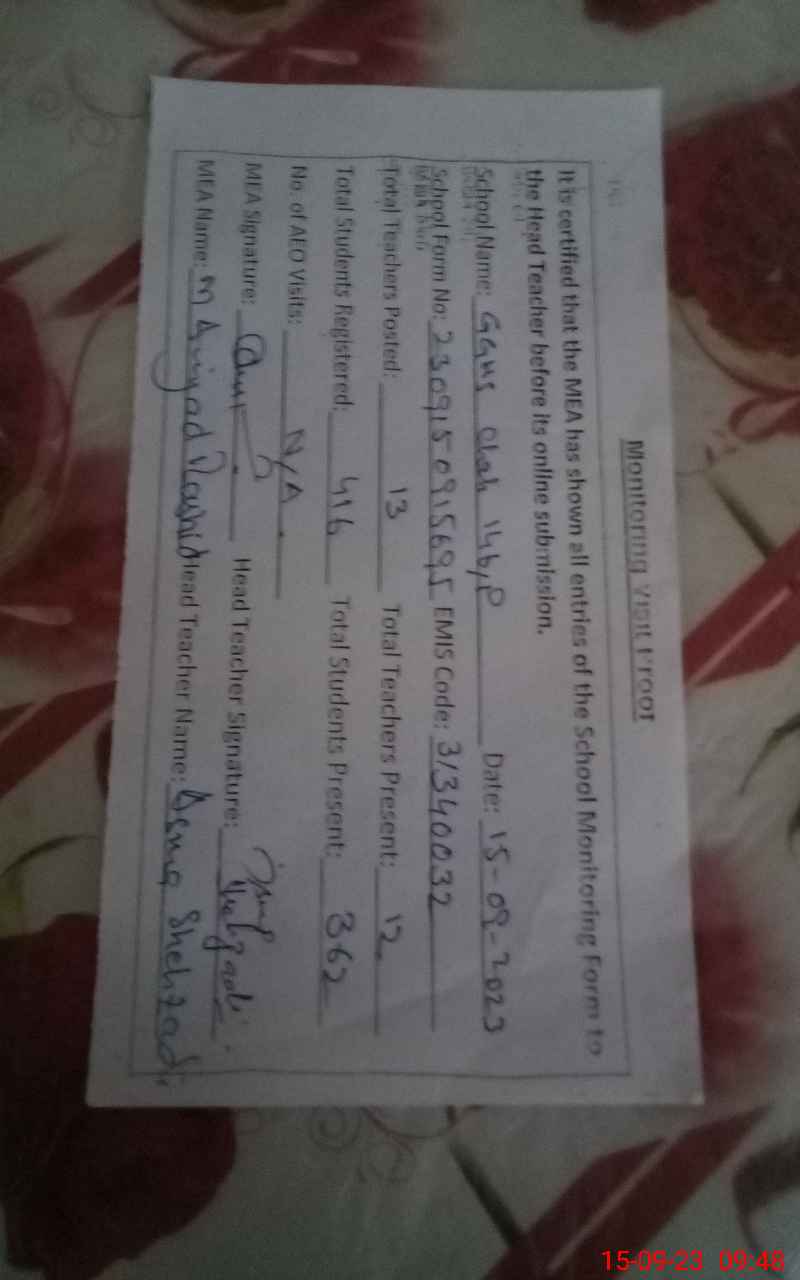 Monitoring Visit Proof
It is certified that the MEA has shown all entries of the School Monitoring Form to
the Head Teacher before its online submission.
School Name: GGHS Chak 14b,P Date: 15-09-2023
School Form No: 2309150915695 EMIS Code: 31340032
Total Teachers Posted: 13 Total Teachers Present: 12
Total Students Registered: 416 Total Students Present: 362
No. of AEO Visits: N/A
MEA Signature: Head Teacher Signature:
MEA Name: M Amjad Rashid Head Teacher Name: Asma Shehzadi
15-09-23 09:48